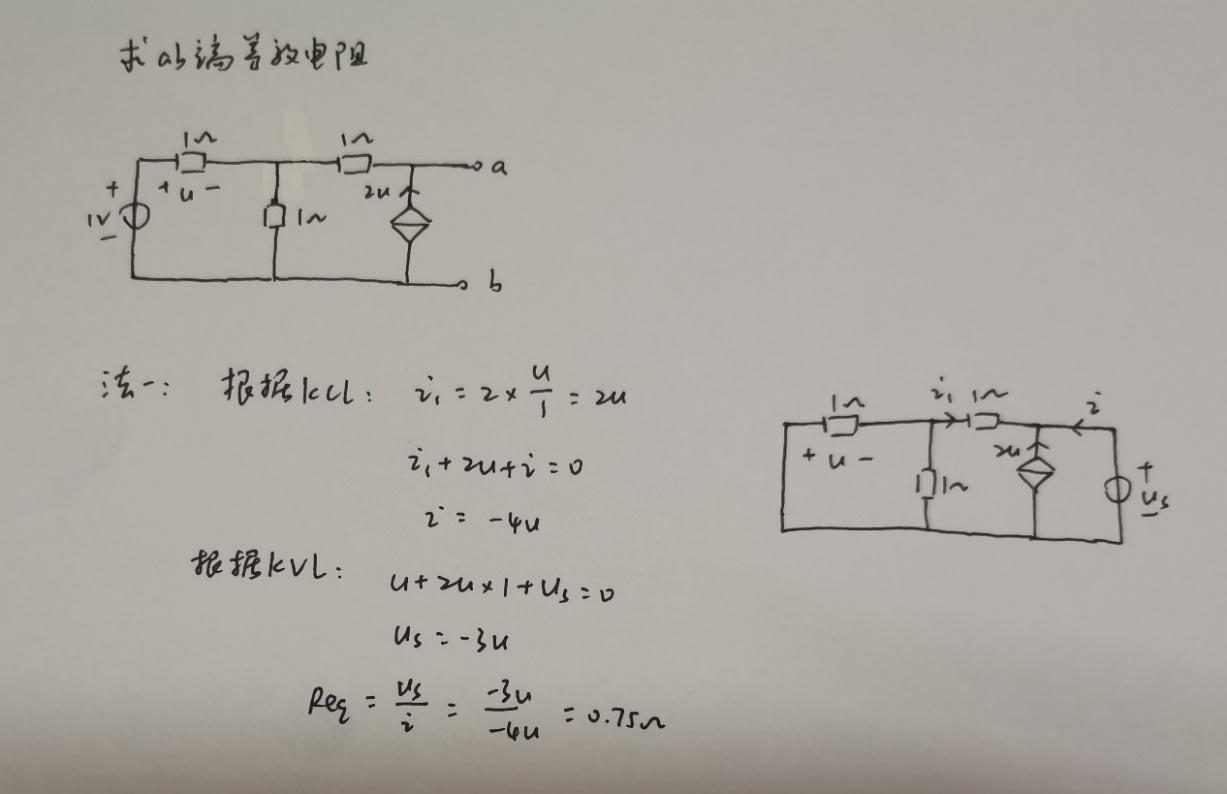 求ab端等效电阻
1Ω 1Ω
+ u - 2u a
+ 1V - 1Ω
b
法一: 根据KCL: i₁ = 2 × u/1 = 2u
i₁ + 2u + i = 0
i = -4u
根据KVL: u + 2u × 1 + us = 0
us = -3u
Req = us/i = -3u/-4u = 0.75Ω
1Ω i₁ 1Ω i
+ u - 1Ω 2u + us -